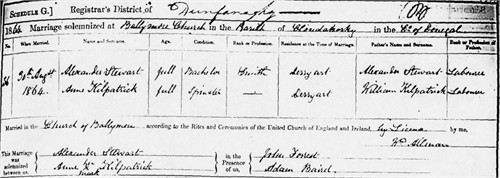 SCHEDULE G.] Registrar's District of Dunfanaghy
1864. Marriage solemnized at Ballymore Church in the Parish of Clondahorky in the Co of Donegal
No. When Married. Name and Surname. Age. Condition. Rank or Profession. Residence at the Time of Marriage. Father's Name and Surname. Rank or Profession of Father.
36 30th Augst 1864. Alexander Stewart full Bachelor Smith Derryart Alexander Stewart Labourer
Anne Kilpatrick full Spinster — Derryart William Kilpatrick Labourer
Married in the Church of Ballymore according to the Rites and Ceremonies of the United Church of England and Ireland, by License by me,
Wm Allman
This Marriage was solemnized between us,
Alexander Stewart
Anne X Kilpatrick
mark
in the Presence of us,
John Forrest
Adam Baird